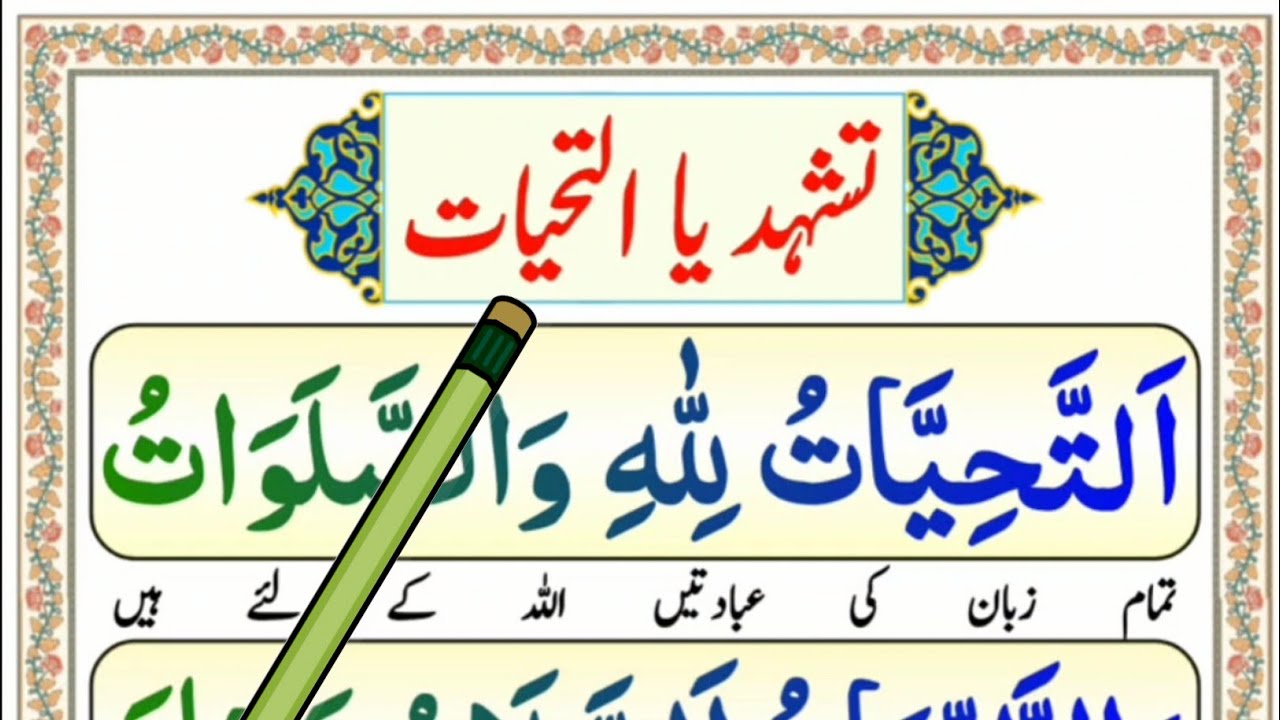 تشہد یا التحیات
اَلتَّحِيَّاتُ لِلّٰهِ وَالصَّلَوَاتُ
تمام زبان کی عبادتیں اللہ کے لئے ہیں